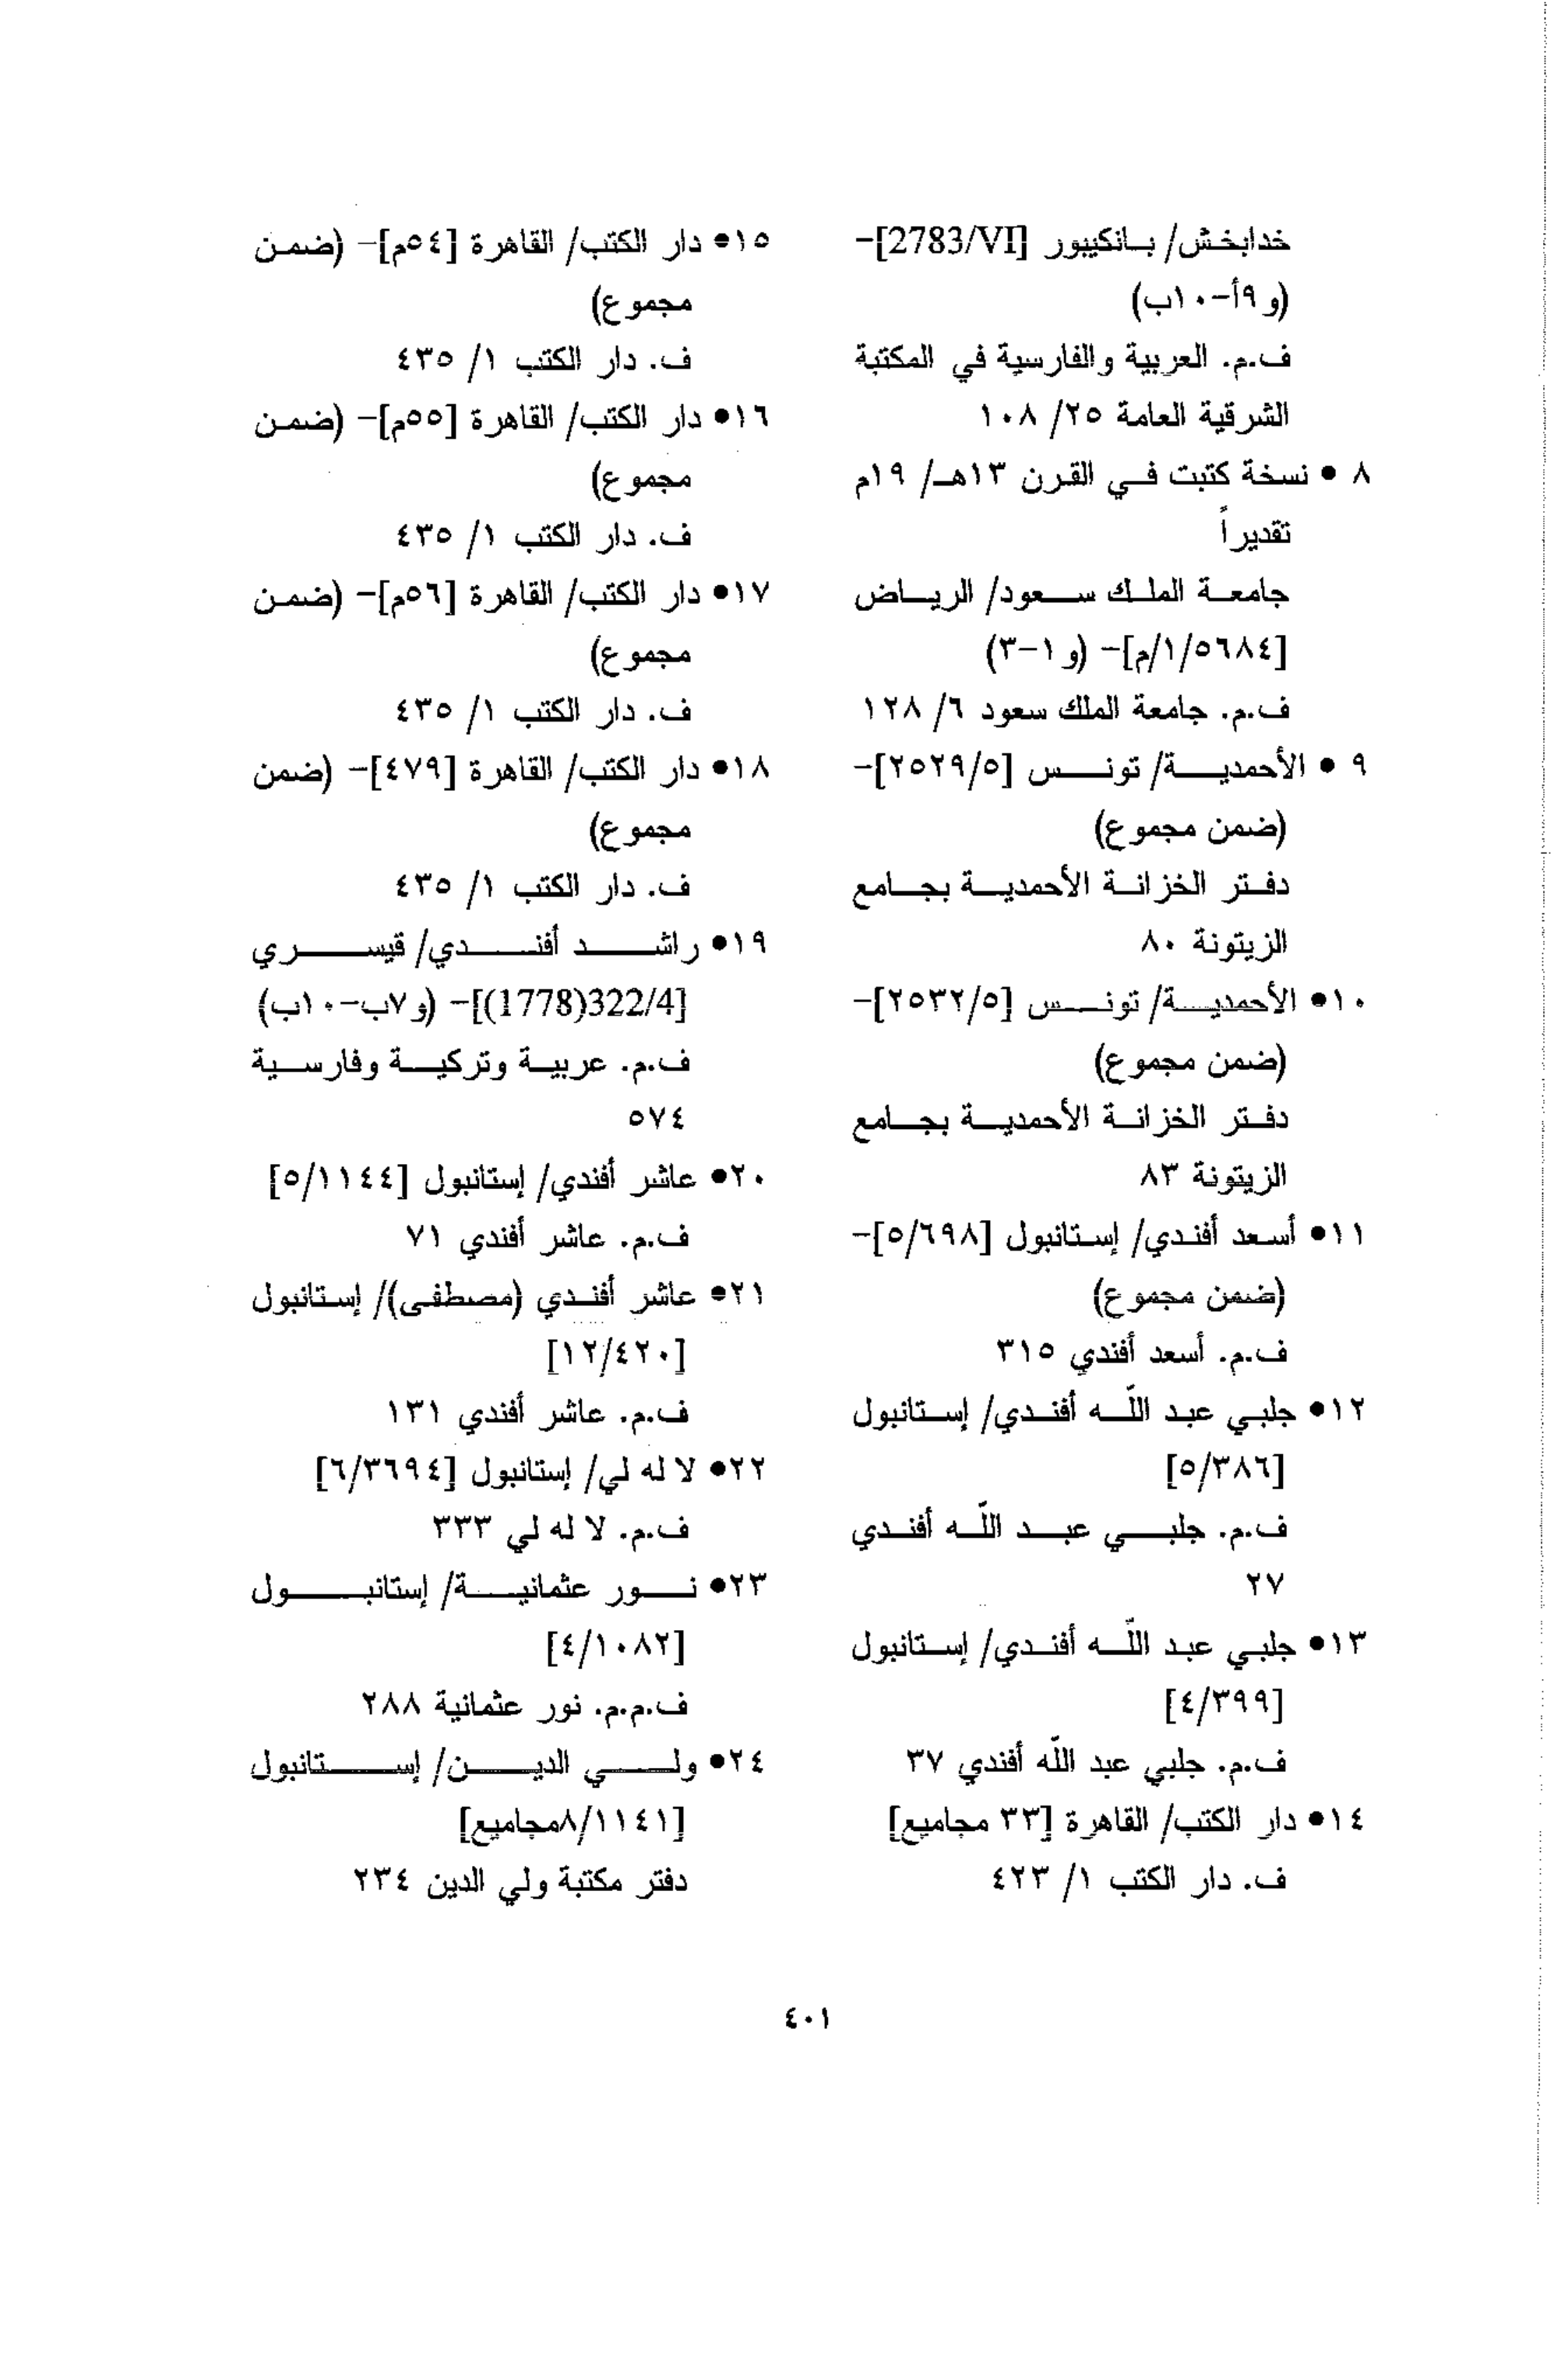 خدابخش/ بانكيپور [2783/VI]-
(و٩أ-١٠ب)
ف.م. العربية والفارسية في المكتبة
الشرقية العامة ٢٥/ ١٠٨
٨ • نسخة كتبت في القرن ١٣هـ/ ١٩م
تقديراً
جامعة الملك سعود/ الرياض
[٥٦٨٤/١/م]- (و١-٣)
ف.م. جامعة الملك سعود ٦/ ١٢٨
٩ • الأحمدية/ تونس [٢٥٢٩/٥]-
(ضمن مجموع)
دفتر الخزانة الأحمدية بجامع
الزيتونة ٨٠
١٠• الأحمدية/ تونس [٢٥٣٢/٥]-
(ضمن مجموع)
دفتر الخزانة الأحمدية بجامع
الزيتونة ٨٣
١١• أسعد أفندي/ إستانبول [٥/٦٩٨]-
(ضمن مجموع)
ف.م. أسعد أفندي ٣١٥
١٢• جلبي عبد اللّه أفندي/ إستانبول
[٥/٣٨٦]
ف.م. جلبي عبد اللّه أفندي
٢٧
١٣• جلبي عبد اللّه أفندي/ إستانبول
[٤/٣٩٩]
ف.م. جلبي عبد اللّه أفندي ٣٧
١٤• دار الكتب/ القاهرة [٣٣ مجاميع]
ف. دار الكتب ١/ ٤٢٣
١٥• دار الكتب/ القاهرة [٥٤م]- (ضمن
مجموع)
ف. دار الكتب ١/ ٤٣٥
١٦• دار الكتب/ القاهرة [٥٥م]- (ضمن
مجموع)
ف. دار الكتب ١/ ٤٣٥
١٧• دار الكتب/ القاهرة [٥٦م]- (ضمن
مجموع)
ف. دار الكتب ١/ ٤٣٥
١٨• دار الكتب/ القاهرة [٤٧٩]- (ضمن
مجموع)
ف. دار الكتب ١/ ٤٣٥
١٩• راشد أفندي/ قيسري
[322/4(1778)]- (و٧ب-١٠ب)
ف.م. عربية وتركية وفارسية
٥٧٤
٢٠• عاشر أفندي/ إستانبول [٥/١١٤٤]
ف.م. عاشر أفندي ٧١
٢١• عاشر أفندي (مصطفى)/ إستانبول
[١٢/٤٢٠]
ف.م. عاشر أفندي ١٣١
٢٢• لا له لي/ إستانبول [٦/٣٦٩٤]
ف.م. لا له لي ٣٣٣
٢٣• نور عثمانية/ إستانبول
[٤/١٠٨٢]
ف.م.م. نور عثمانية ٢٨٨
٢٤• ولي الدين/ إستانبول
[٨/١١٤١مجاميع]
دفتر مكتبة ولي الدين ٢٣٤
٤٠١